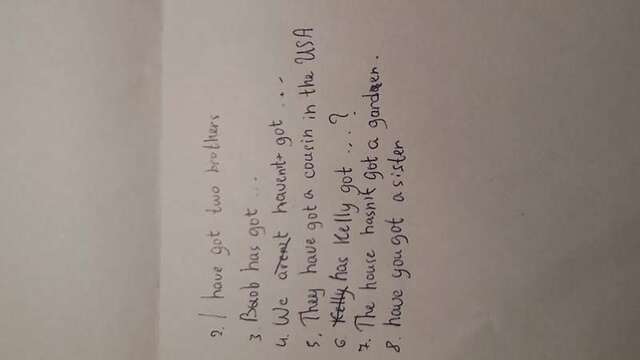 2. I have got two brothers
3 Bob has got ...
4. We aren't haven't got ...
5. They have got a cousin in the USA
6 Kelly has Kelly got ...?
7. The house hasn't got a garden.
8. have you got a sister